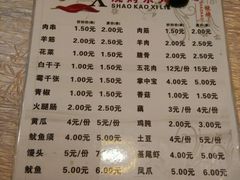 SHAO KAO XI LIE
肉串 1.50元 2.00元 肉筋 1.50元 2.00元
羊筋 2.00元 2.50元 羊肉 2.00元 2.50元
花菜 1.50元 2.00元 脆骨 2.00元 2.50元
白干子 1.50元 2.00元 五花肉 12元/份 15元/份
霉千张 1.50元 2.00元 掌中宝 4.00元 5.00元
青椒 1.50元 2.00元 香菇 2.00元 2.50元
火腿肠 2.00元 2.50元 藕 3元/份 4元/份
黄瓜 4元/份 5元/份 鸡肫 2.00元 3.00元
鱿鱼须 4.00元 5.00元 土豆 4元/份 5元/份
馒头 5元/份 基尾虾 4.00元 5.00元
鱿鱼 5.00元 6.00元 凤爪 5.00元 6.00元